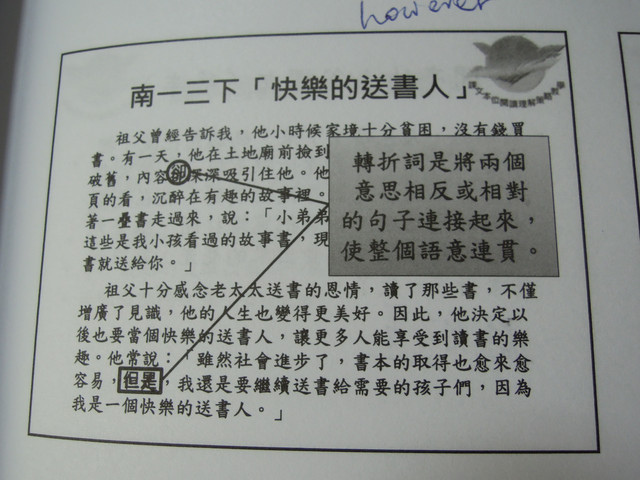 however
南一三下「快樂的送書人」
課文本位閱讀理解策略教學
祖父曾經告訴我，他小時候家境十分貧困，沒有錢買
書。有一天，他在土地廟前撿到
破舊，內容卻深深吸引住他。他
頁的看，沉醉在有趣的故事裡。
著一疊書走過來，說：「小弟弟
這些是我小孩看過的故事書，現
書就送給你。」
轉折詞是將兩個
意思相反或相對
的句子連接起來，
使整個語意連貫。
祖父十分感念老太太送書的恩情，讀了那些書，不僅
增廣了見識，他的人生也變得更美好。因此，他決定以
後也要當個快樂的送書人，讓更多人能享受到讀書的樂
趣。他常說：「雖然社會進步了，書本的取得也愈來愈
容易，但是，我還是要繼續送書給需要的孩子們，因為
我是一個快樂的送書人。」